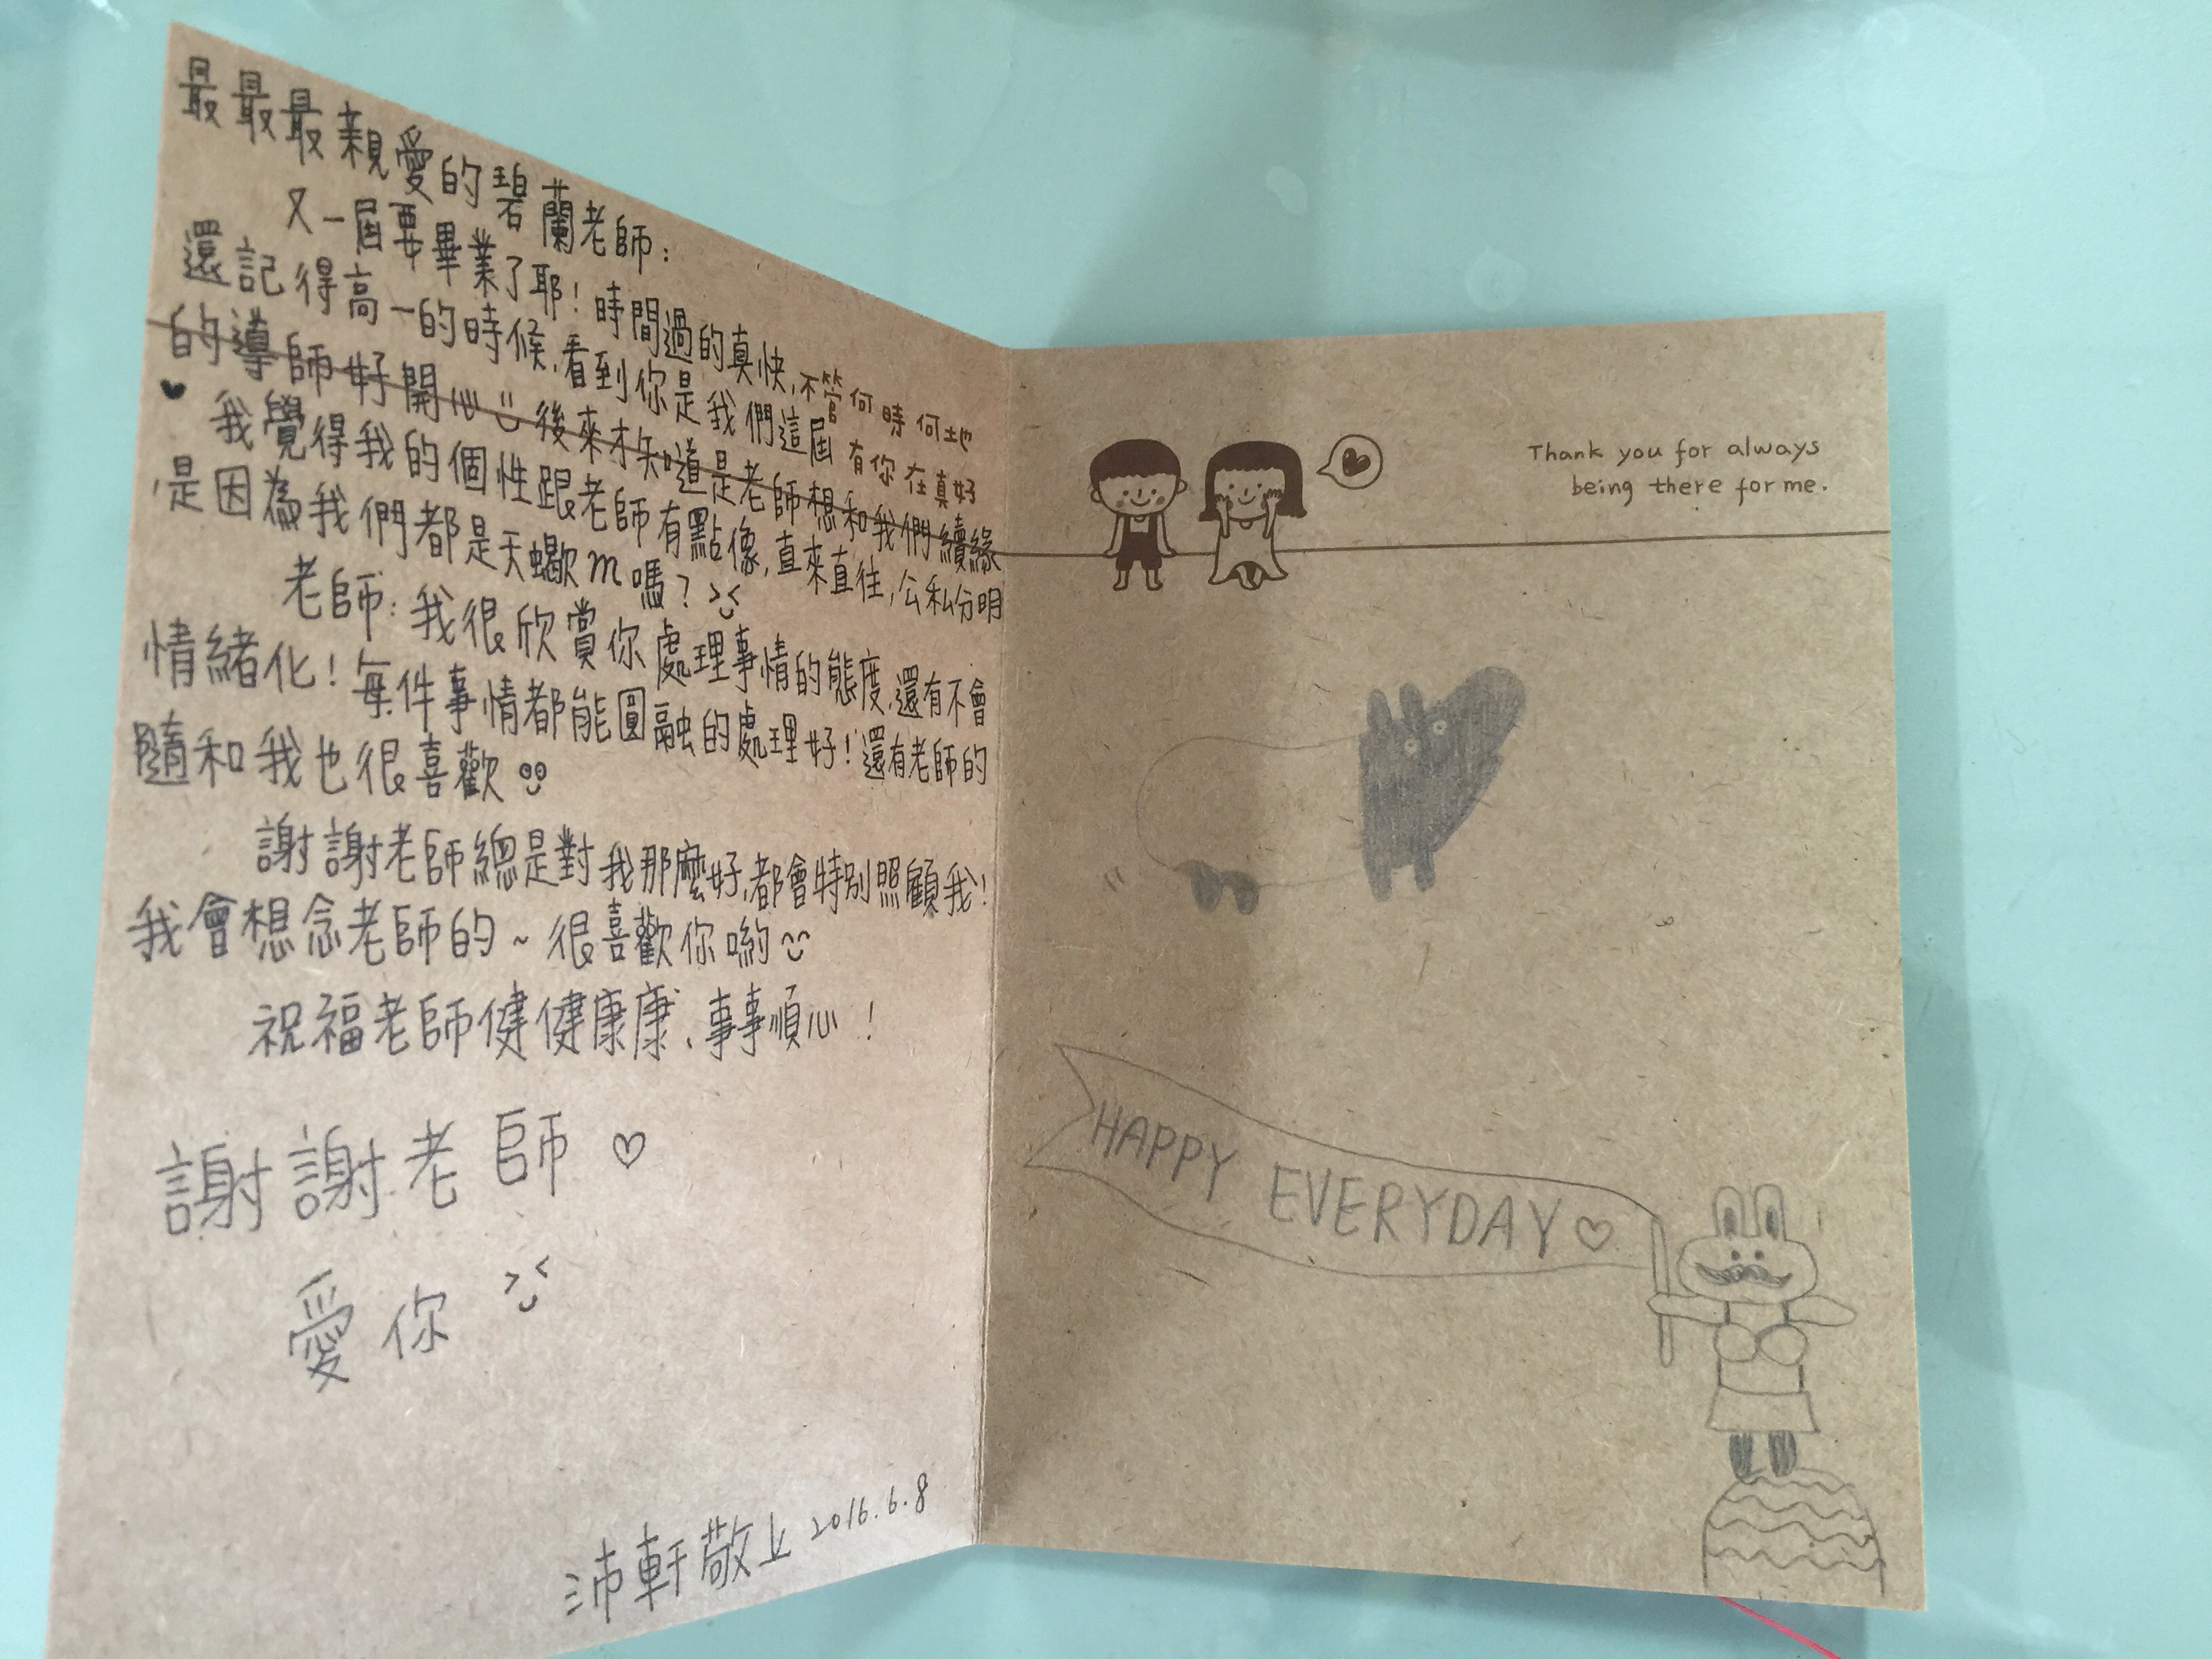 最最最親愛的碧蘭老師：
又一屆要畢業了耶！時間過的真快，
不管何時何地
有你在真好
還記得高一的時候，看到你是我們這屆
的導師好開心 後來才知道是老師想和我們續緣
我覺得我的個性跟老師有點像，直來直往，公私分明
，是因為我們都是天蠍m嗎？
老師：我很欣賞你處理事情的態度，還有不會
情緒化！每件事情都能圓融的處理好！還有老師的
隨和我也很喜歡
謝謝老師總是對我那麼好，都會特別照顧我！
我會想念老師的~很喜歡你喲
祝福老師健健康康、事事順心！
謝謝老師♡
愛你
沛軒敬上 2016.6.8
Thank you for always
being there for me.
HAPPY EVERYDAY♡